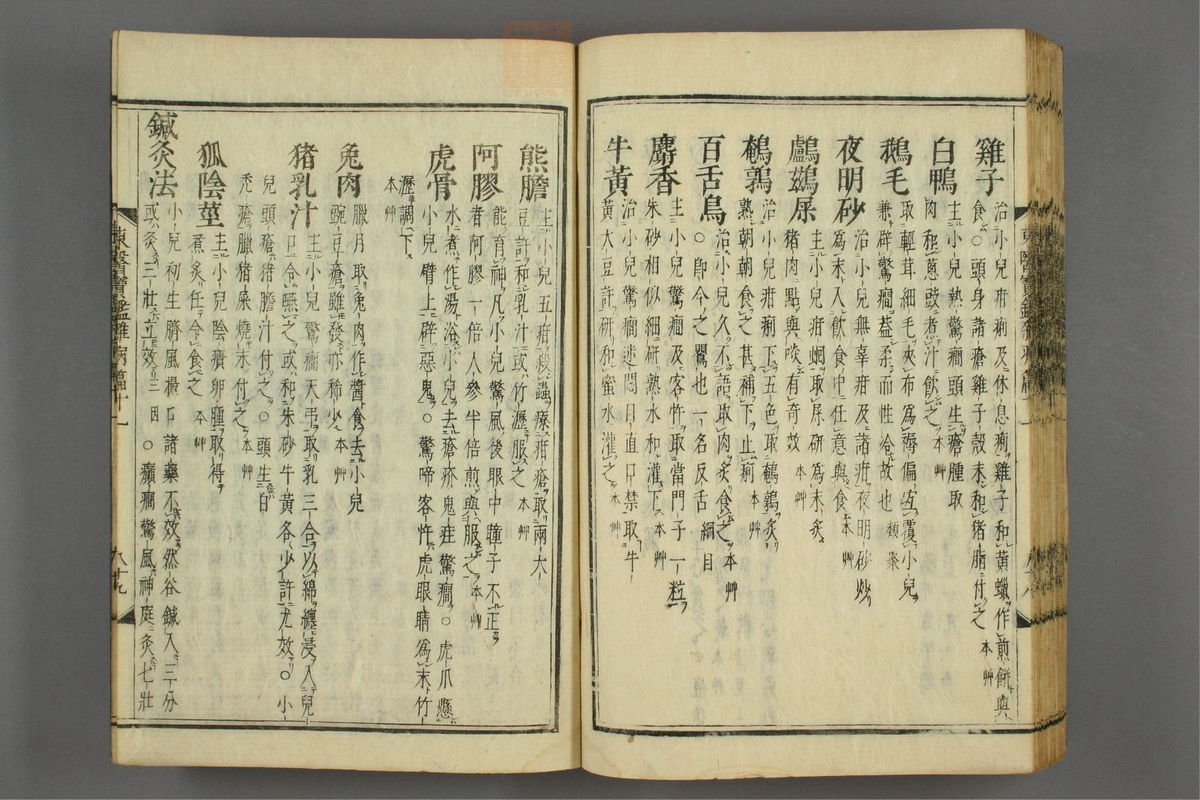 雞子
治小兒疳及休息痢雞子和黃蠟作煎餅與
食○頭身諸瘡雞子殼末和猪脂付之 本艸
白鴨
主小兒熱驚癇頭生瘡腫取
肉和葱豉煮汁飲之 本艸
鵝毛
取輕茸細毛夾布爲褥偏宜覆小兒
兼辟驚癇盖柔而性冷故也 類聚
夜明砂
治小兒無辜疳及諸疳夜明砂炒
爲末入飮食中任意與食 本艸
鸕鷀屎
主小兒疳蛔取屎研爲末炙
猪肉點與啖有奇效 本艸
鵪鶉
治小兒疳痢下五色取鵪鶉炙
熟朝朝食之甚補下止痢 本艸
百舌鳥
治小兒久不語取肉炙食之 本艸
○卽今之鸎也一名反舌 綱目
麝香
主小兒驚癇及客忤取當門子一粒
朱砂相似細研熟水和灌下 本艸
牛黃
治小兒驚癇迷悶目直口禁取牛
黃大豆許研和蜜水灌之 本艸
熊膽
主小兒五疳殺蟲療疳瘡取兩大
豆許和乳汁或竹瀝服之 本艸
阿膠
能育神凡小兒驚風後眼中瞳子不正
者阿膠一倍人參半倍煎與服之 本艸
虎骨
水煮作湯浴小兒去瘡疥鬼疰驚癇○虎爪懸
小兒臂上辟惡鬼○驚啼客忤虎眼睛爲末竹
瀝調下 本艸
兔肉
臘月取兔肉作醬食去小兒
豌豆瘡雖發亦稀少 本艸
猪乳汁
主小兒驚癇天弔取乳三合以綿纏浸入兒
口合嚥之或和朱砂牛黃各少許尤效○小
兒頭瘡猪膽汁付之○頭生白
禿瘡臘猪屎燒末付之 本艸
狐陰莖
主小兒陰㿉卵腫取得
煮炙任令食之 本艸
鍼灸法
小兒初生臍風撮口諸藥不效然谷鍼入三分
或灸三壯立效 三因 ○癲癇驚風神庭灸七壯
東醫寶鑑雜病篇十一
八十九